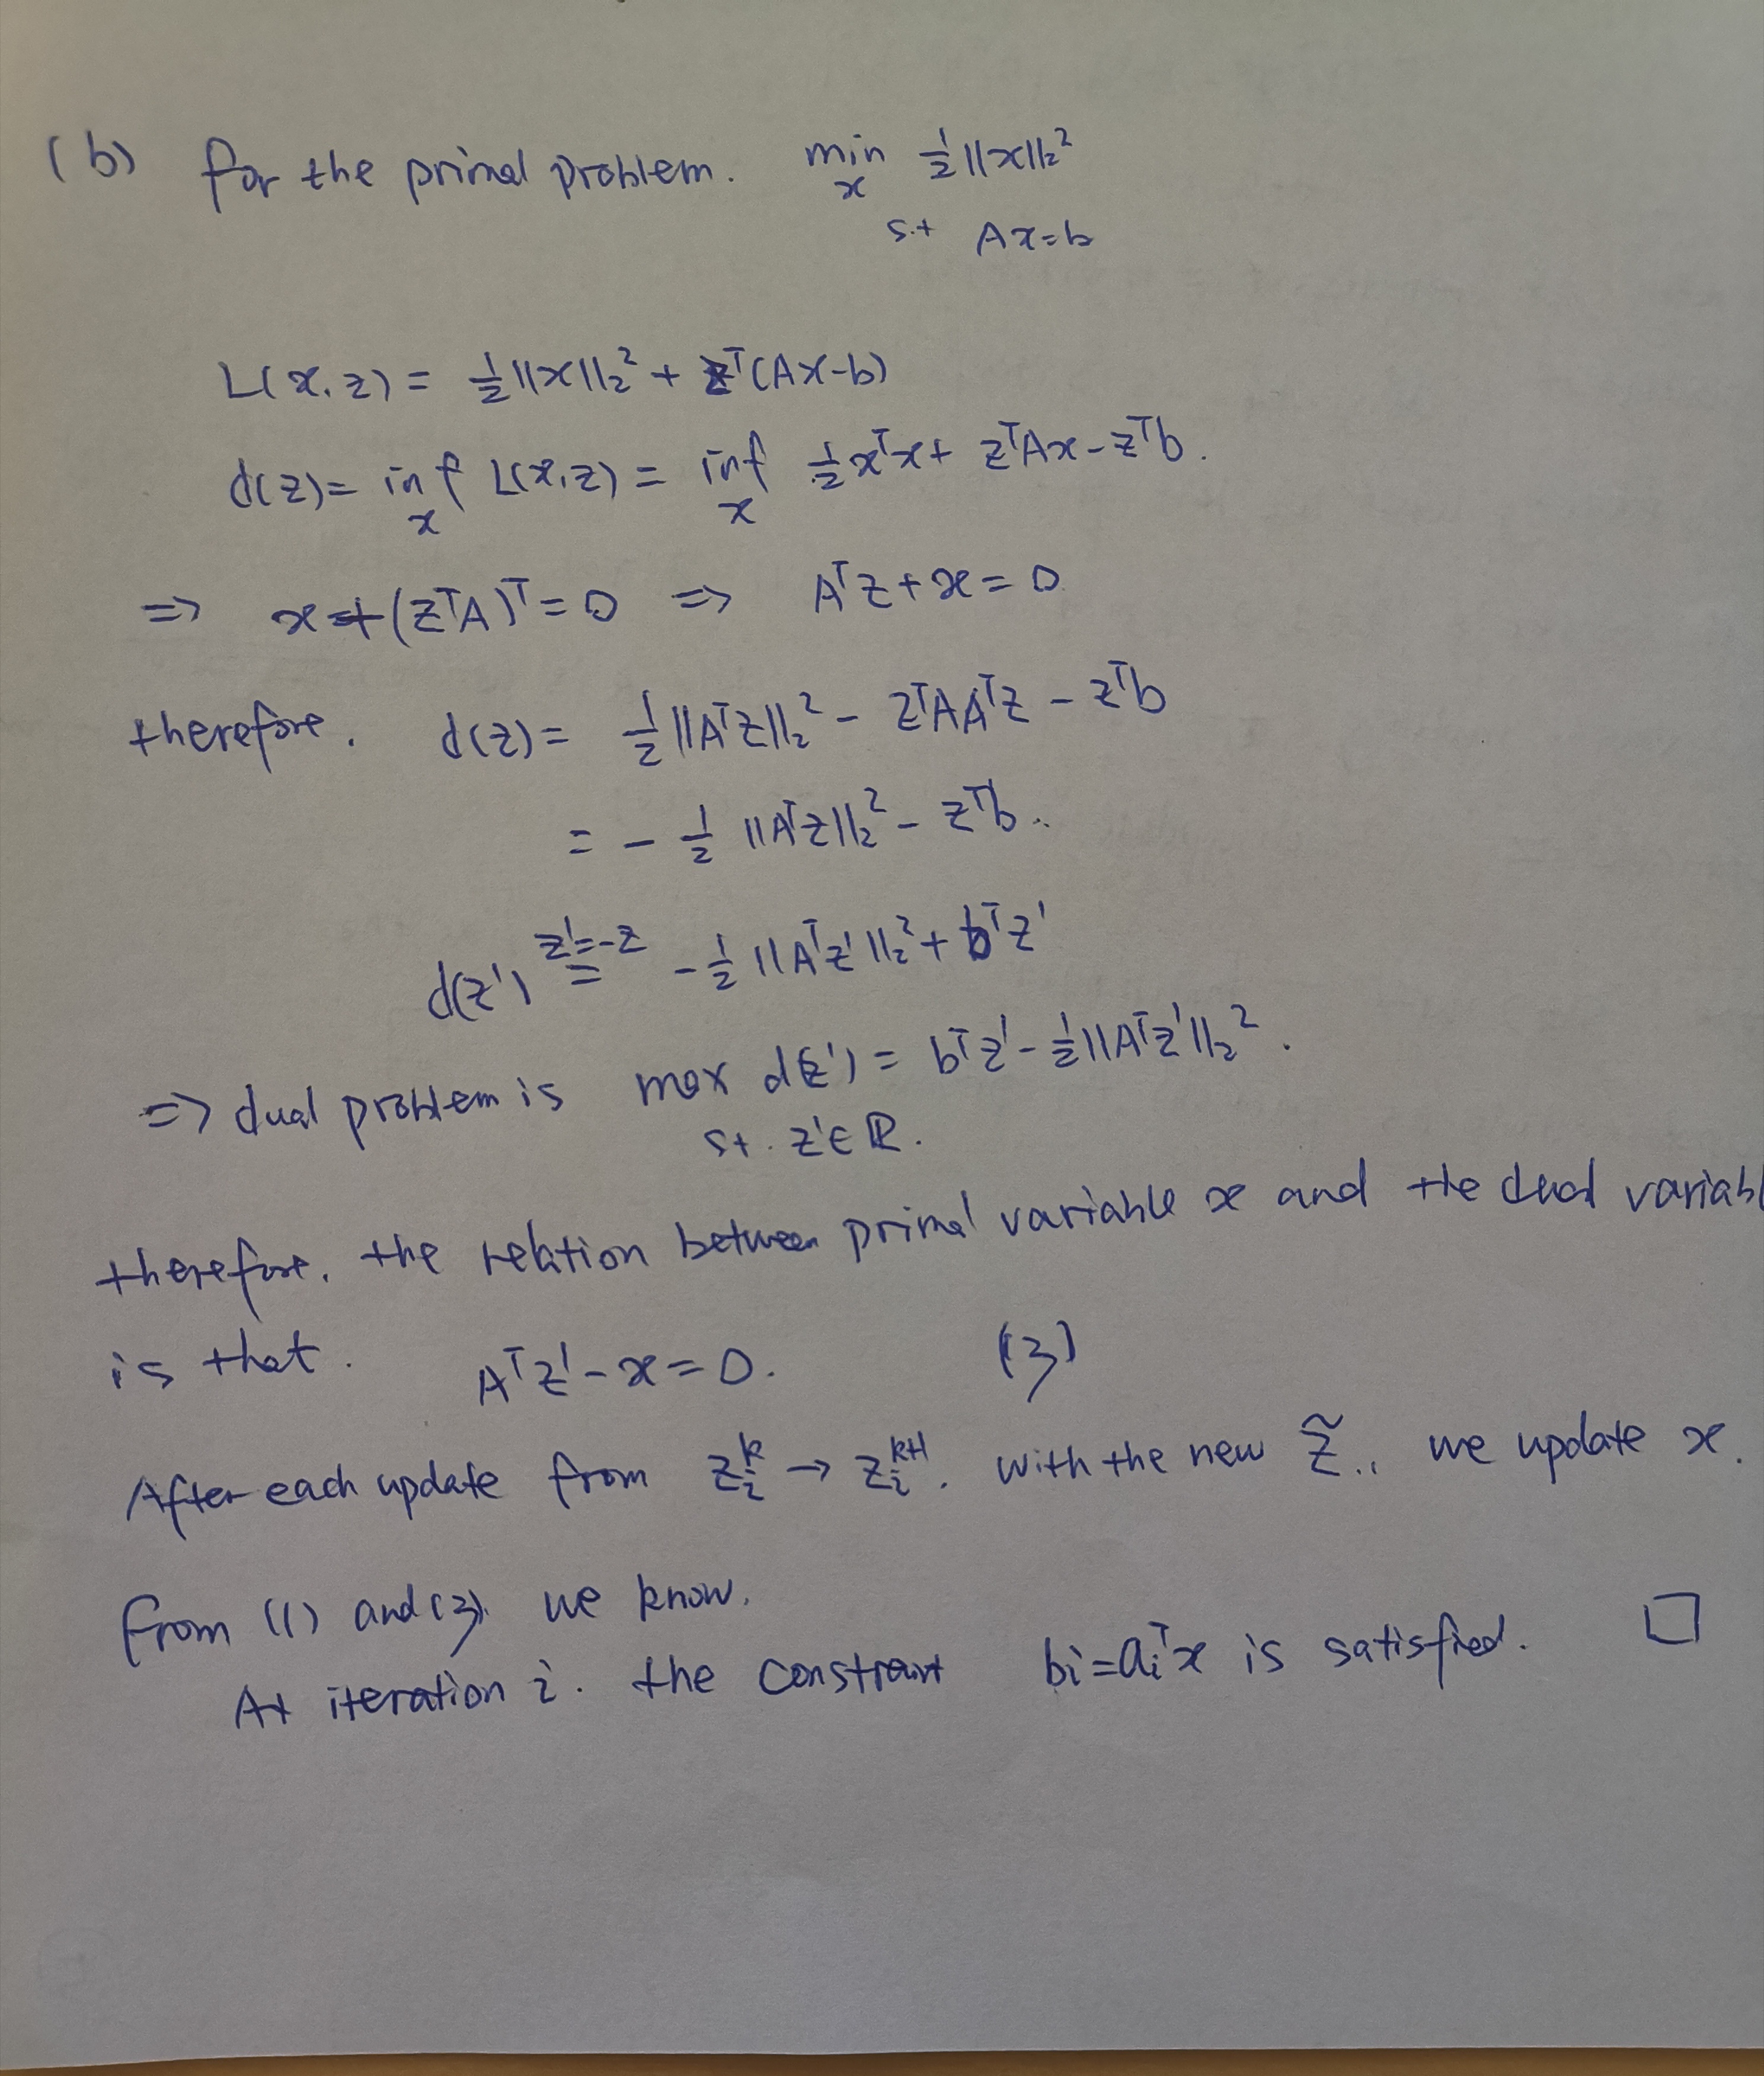 (b) for the primal problem. min ½||x||₂²
x
s.t Ax=b
L(x,z) = ½||x||₂² + zᵀ(Ax-b)
d(z) = inf L(x,z) = inf ½xᵀx + zᵀAx - zᵀb.
x x
=> x + (zᵀA)ᵀ = 0 => Aᵀz + x = 0
therefore. d(z) = ½||Aᵀz||₂² - zᵀAAᵀz - zᵀb
= - ½ ||Aᵀz||₂² - zᵀb.
z'=-z
d(z') = -½||Aᵀz'||₂² + bᵀz'
=> dual problem is max d(z') = bᵀz' - ½||Aᵀz'||₂².
st. z'∈ℝ.
therefore, the relation between primal variable x and the dual variabl
is that. Aᵀz' - x = 0. (3)
After each update from zᵢᵏ → zᵢᵏ⁺¹, with the new z̃.., we update x.
from (1) and (3), we know.
At iteration i. the constraint bi = aᵢᵀx is satisfied. □